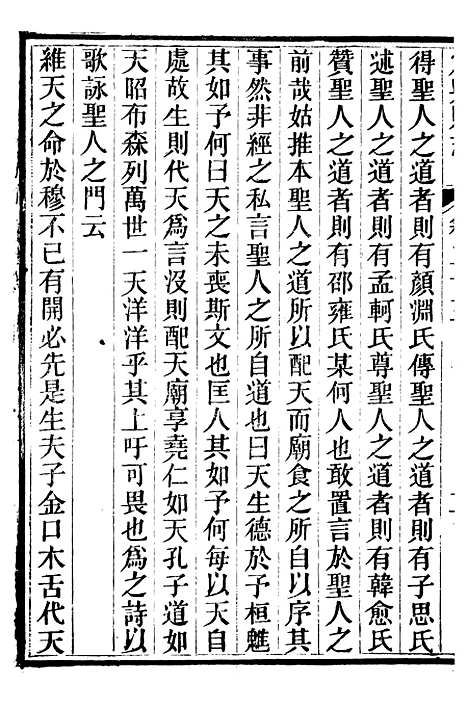 得聖人之道者則有顏淵氏傳聖人之道者則有子思氏
述聖人之道者則有孟軻氏尊聖人之道者則有韓愈氏
贊聖人之道者則有邵雍氏某何人也敢置言於聖人之
前哉姑推本聖人之道所以配天而廟食之所以序其
事然非經之私言聖人之所自道也曰天生德於予桓魋
其如予何曰天之未喪斯文也匡人其如予何每以天自
處故生則代天爲言沒則配天廟享堯仁如天孔子道如
天昭布森列萬世一天洋洋乎其上吁可畏也爲之詩以
歌詠聖人之門云
維天之命於穆不已有開必先是生夫子金口木舌代天